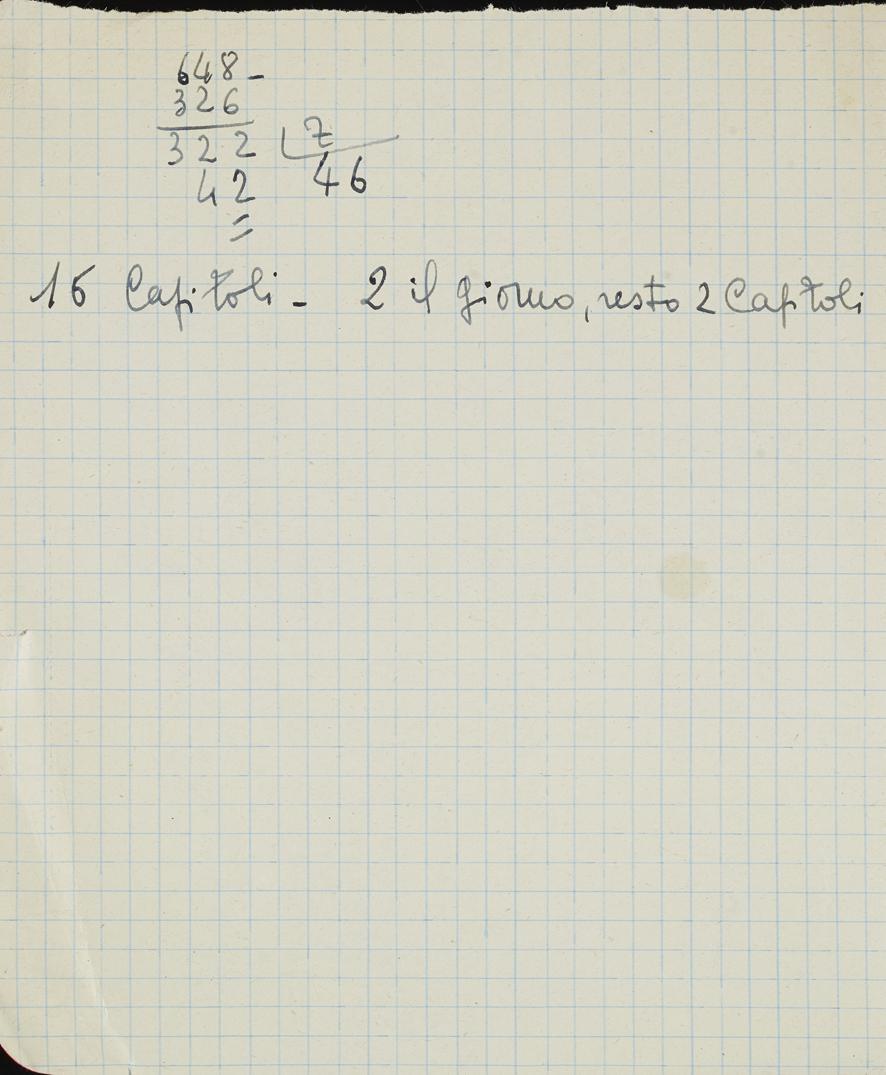 648-
326
322 7
42 46
=
16 Capitoli - 2 il giorno, resto 2 Capitoli